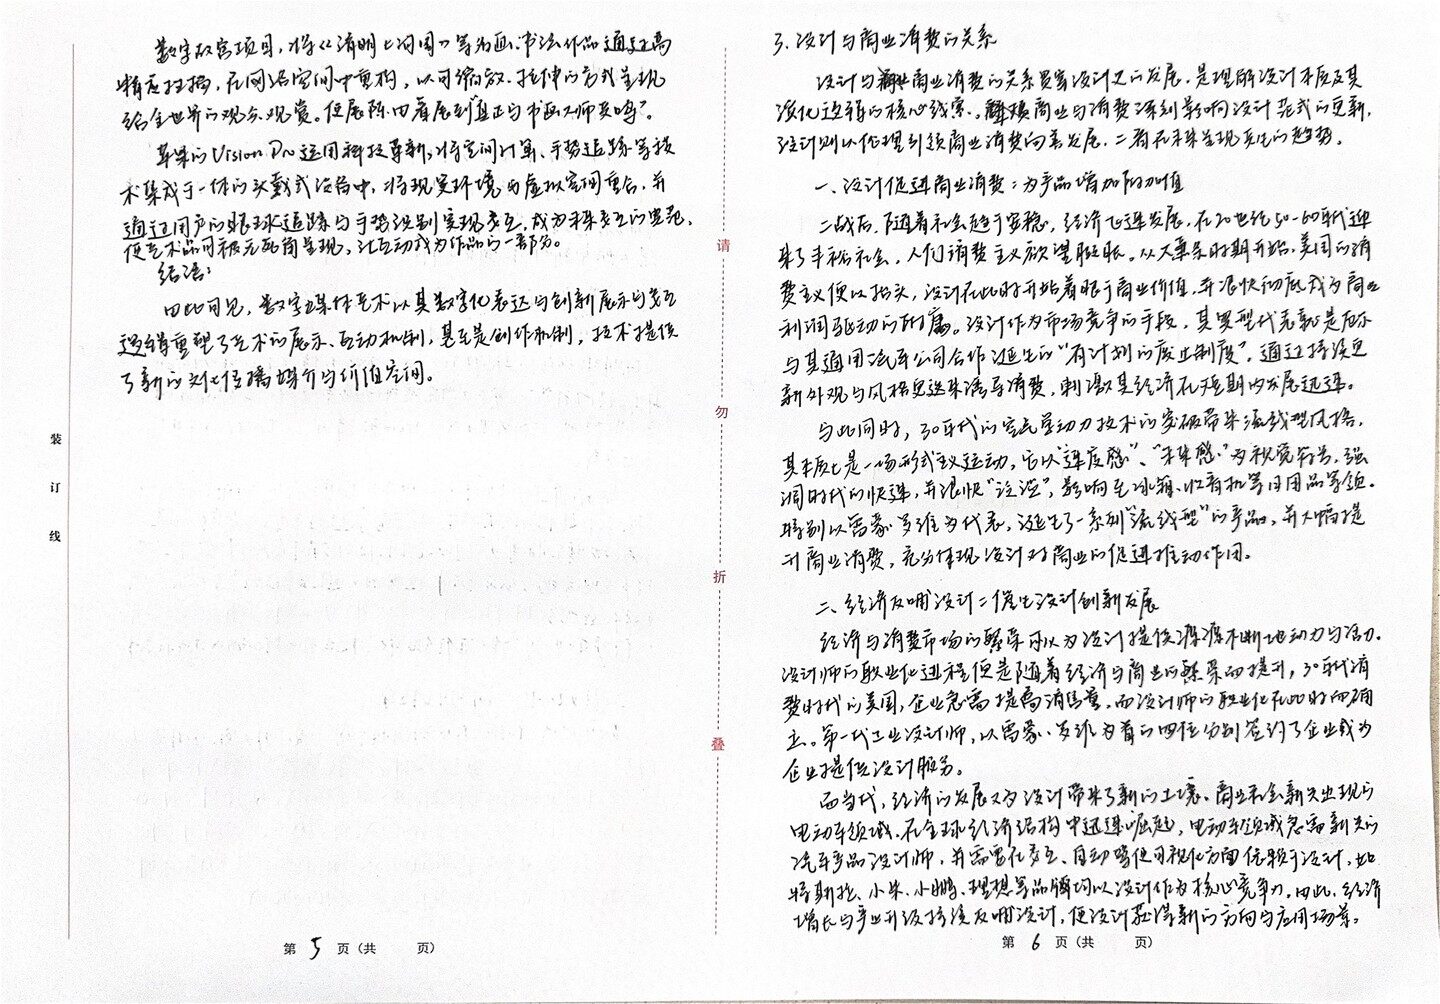 数字故宫项目，将《清明上河图》等名画、书法作品通过高
精度扫描，在网络空间中重构，以可缩放、拉伸的方式呈现
给全世界的观众观赏。使展陈由看展到“真正与书画大师共鸣”。
苹果的Vision Pro运用科技革新，将空间计算、手势追踪等技
术集成于一体的头戴式设备中，将现实环境与虚拟空间重合，并
通过用户的眼球追踪与手势识别实现交互，成为未来交互的典范，
使艺术品可被无死角呈现，让互动成为作品的一部分。
结语：
由此可见，数字媒体艺术以其数字化表达与创新展示与交互
过程重塑了艺术的展示、互动机制，甚至是创作机制，技术提供
了新的文化传播媒介与价值空间。
装
订
线
请
勿
折
叠
第 5 页（共 页）
3. 设计与商业消费的关系
设计与商业消费的关系贯穿设计史的发展，是理解设计本质及其
演化过程的核心线索。商业与消费深刻影响设计范式的更新，
设计则以伦理引领商业消费向善发展，二者在未来呈现共生的趋势。
一、设计促进商业消费：为产品增加附加值
二战后，随着社会趋于安稳，经济飞速发展，在20世纪50-60年代迎
来了丰裕社会，人们消费主义欲望膨胀。从大萧条时期开始，美国的消
费主义便以抬头，设计在此时开始着眼于商业价值，并很快彻底成为商业
利润驱动的附庸。设计作为市场竞争的手段，其典型代表就是厄尔
与其通用汽车公司合作诞生的“有计划的废止制度”，通过持续更
新外观与风格更迭来诱导消费，刺激其经济在短期内发展迅速。
与此同时，30年代的空气动力技术的突破带来流线型风格，
其本质上是一场形式主义运动，它以“速度感”、“未来感”为视觉符号，强
调时代的快速，并很快“泛滥”，影响至冰箱、收音机等日用品等领。
特别以雷蒙·罗维为代表，诞生了一系列“流线型”的产品，并大幅提
升商业消费，充分体现设计对商业的促进推动作用。
二、经济反哺设计：催生设计创新发展
经济与消费市场的繁荣可以为设计提供源源不断地动力与活力。
设计师的职业化进程便是随着经济与商业的繁荣而提升，30年代消
费时代的美国，企业急需提高销售量，而设计师的职业化在此时而确
立。第一代工业设计师，以雷蒙·罗维为首的四位分别签约了企业或为
企业提供设计服务。
而当代，经济的发展又为设计带来了新的土壤。商业社会新兴业现与
电动车领域，在全球经济结构中迅速崛起，电动车领域急需新兴的
汽车产品设计师，并需要在交互、自动驾驶可视化方面依赖于设计，如
特斯拉、小米、小鹏、理想等品牌均以设计作为核心竞争力。由此，经济
增长与产业升级持续反哺设计，使设计获得新的方向与应用场景。
第 6 页（共 页）